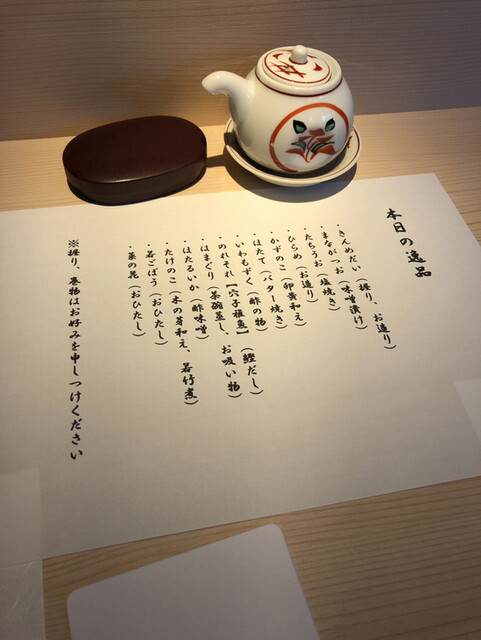 本日の逸品
・きんめだい（握り、お造り）
・まながつお（味噌漬け）
・たちうお（塩焼き）
・ひらめ（お造り）
・かずのこ（卵黄和え）
・ほたて（バター焼き）
・いわもずく（酢の物）
・のれそれ【穴子稚魚】（鰹だし）
・はまぐり（茶碗蒸し、お吸い物）
・ほたるいか（酢味噌）
・たけのこ（木の芽和え、若竹煮）
・若ごぼう（おひたし）
・菜の花（おひたし）
※握り、巻物はお好みを申しつけください